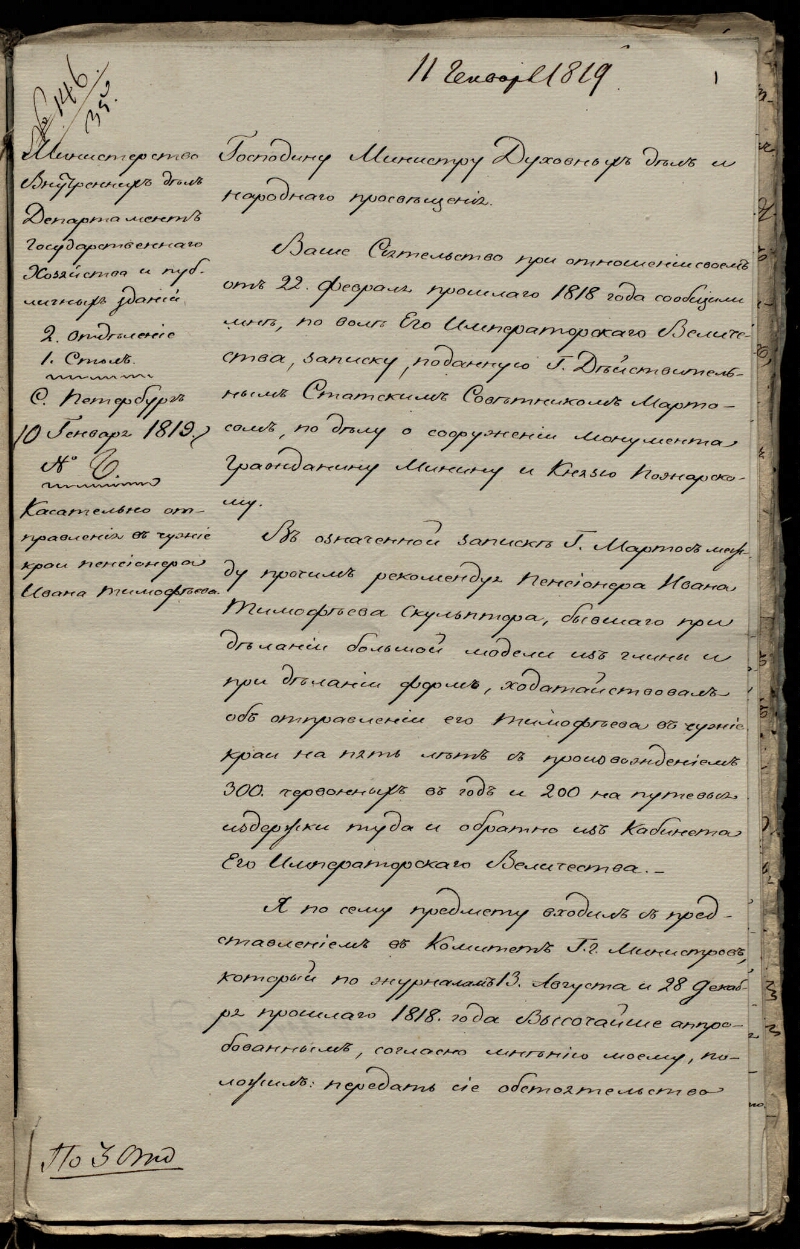 11 Генваря 1819.
1
№ 146.
35.
Министерство
Внутреннихъ дѣлъ
Департаментъ
Государственнаго
Хозяйства и пуб-
личныхъ зданій
2. отдѣленіе
1. Столъ.
С. Петербургъ
10 Генваря 1819.
№ 6.
Касательно от-
правленія въ чужіе
краи пенсіонера
Ивана Тимофѣева.
Господину Министру Духовныхъ дѣлъ и
народнаго просвѣщенія.
Ваше Сіятельство при отношеніи своемъ
отъ 22. февраля прошлаго 1818 года сообщили
мнѣ, по волѣ Его Императорскаго Величе-
ства, записку, поданную Г. Дѣйствитель-
нымъ Статскимъ Совѣтникомъ Марто-
сомъ, по дѣлу о сооруженіи монумента
Гражданину Минину и Князю Пожарско-
му.
Въ означенной запискѣ Г. Мартосъ меж-
ду прочимъ рекомендуя Пенсіонера Ивана
Тимофѣева Скульптора, бывшаго при
дѣланіи большой модели изъ глины и
при дѣланіи формъ, ходатайствовалъ
объ отправленіи его Тимофѣева въ чужіе
краи на пять лѣтъ съ произвожденіемъ
300. червонныхъ въ годъ и 200 на путевыя
издержки туда и обратно изъ Кабинета
Его Императорскаго Величества. —
Я по сему предмету входилъ съ пред-
ставленіемъ въ Комитетъ Г. г. Министровъ,
который по журналамъ 13. Августа и 28 декаб-
ря прошлаго 1818. года Высочайше апро-
бованнымъ, согласно мнѣнію моему, по-
ложилъ: передать сіе обстоятельство
По 3 Отд